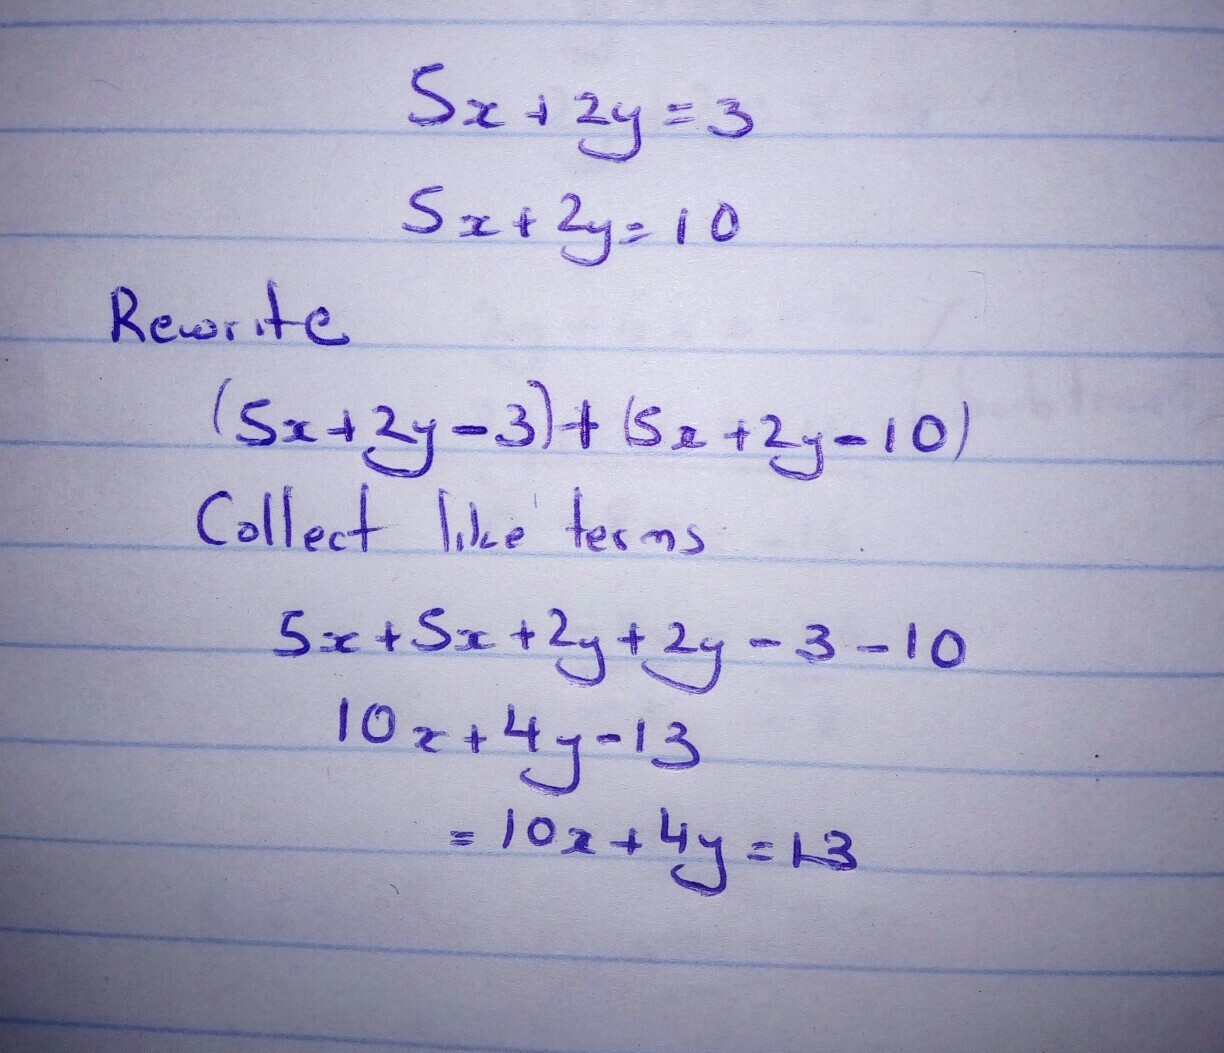 5x+2y=3
5x+2y=10
Rewrite
(5x+2y-3)+(5x+2y-10)
Collect like terms
5x+5x+2y+2y-3-10
10x+4y-13
=10x+4y=13